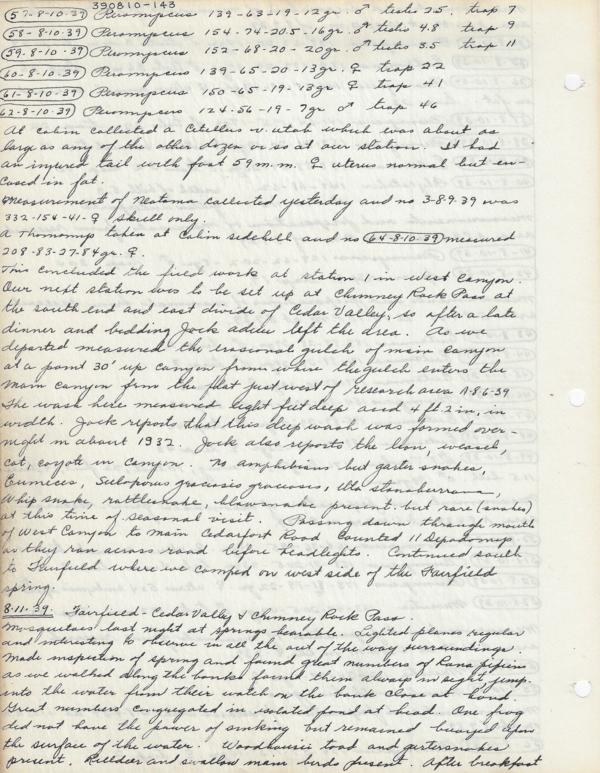 390810-143
57-8-10-39 Peromyscus 139-63-19-12gr. ♂ testis 2.5. trap 7
58-8-10-39 Peromyscus 154-74-20.5-16gr. ♂ testis 4.8 trap 9
59-8-10-39 Peromyscus 152-68-20-20gr. ♂ testis 3.5 trap 11
60-8-10-39 Peromyscus 139-65-20-13gr. ♀ trap 22
61-8-10-39 Peromyscus 150-65-19-13gr. ♀ trap 41
62-8-10-39 Peromyscus 124-56-19-7gr ♂ trap 46
At cabin collected a Citellus v. utah which was about as
large as any of the other dozen or so at our station. It had
an injured tail with foot 59 m.m. ♀ uterus normal but en-
cased in fat.
Measurement of Neotoma collected yesterday and no 3-8-9-39 was
332-154-41-♀ skull only.
A Thomomys taken at Cabin sidehill and no 64-8-10-39 measured
208-83-27-84gr. ♀.
This concluded the field work at station 1 in West Canyon.
Our next station was to be set up at Chimney Rock Pass at
the south end and east divide of Cedar Valley, so after a late
dinner and bidding Jock adieu left the area. As we
departed measured the erosional gulch of main canyon
at a point 30' up canyon from where the gulch enters the
main canyon from the flat just west of research area A-8-6-39
The wash here measured eight feet deep and 4 ft 2 in, in
width. Jock reports that this deep wash was formed over-
night in about 1932. Jock also reports the lion, weasel,
cat, coyote in canyon. No amphibians but garter snakes,
Eumeces, Sceloporus graciosis graciosus, Uta stansburiana,
Whip snake, rattlesnake, blowsnake present but rare (snakes)
at this time of seasonal visit. Passing down through mouth
of West Canyon to main Cedarfort Road counted 11 Dipodomys
as they ran across road before headlights. Continued south
to Fairfield where we camped on west side of the Fairfield
spring.
8-11-39. Fairfield - Cedar Valley & Chimney Rock Pass.
Mosquitoes last night at springs bearable. Lighted planes regular
and interesting to observe in all the out of the way surroundings.
Made inspection of spring and found great numbers of Rana pipiens
as we walked along the banks found them always in sight, jump.
into the water from their watch on the bank close at hand.
Great numbers congregated in isolated pond at head. One frog
did not have the power of sinking but remained buoyed upon
the surface of the water. Woodhousii toad and gartersnakes
present. Killdeer and swallow main birds present. After breakfast